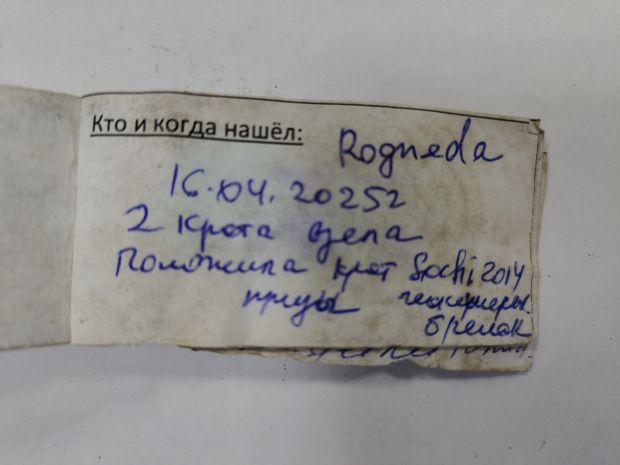 Кто и когда нашёл:
Rogneda
16.04.2025г
2 крота взела
Положила крот Sochi 2014
призы геокешеры.
брелок